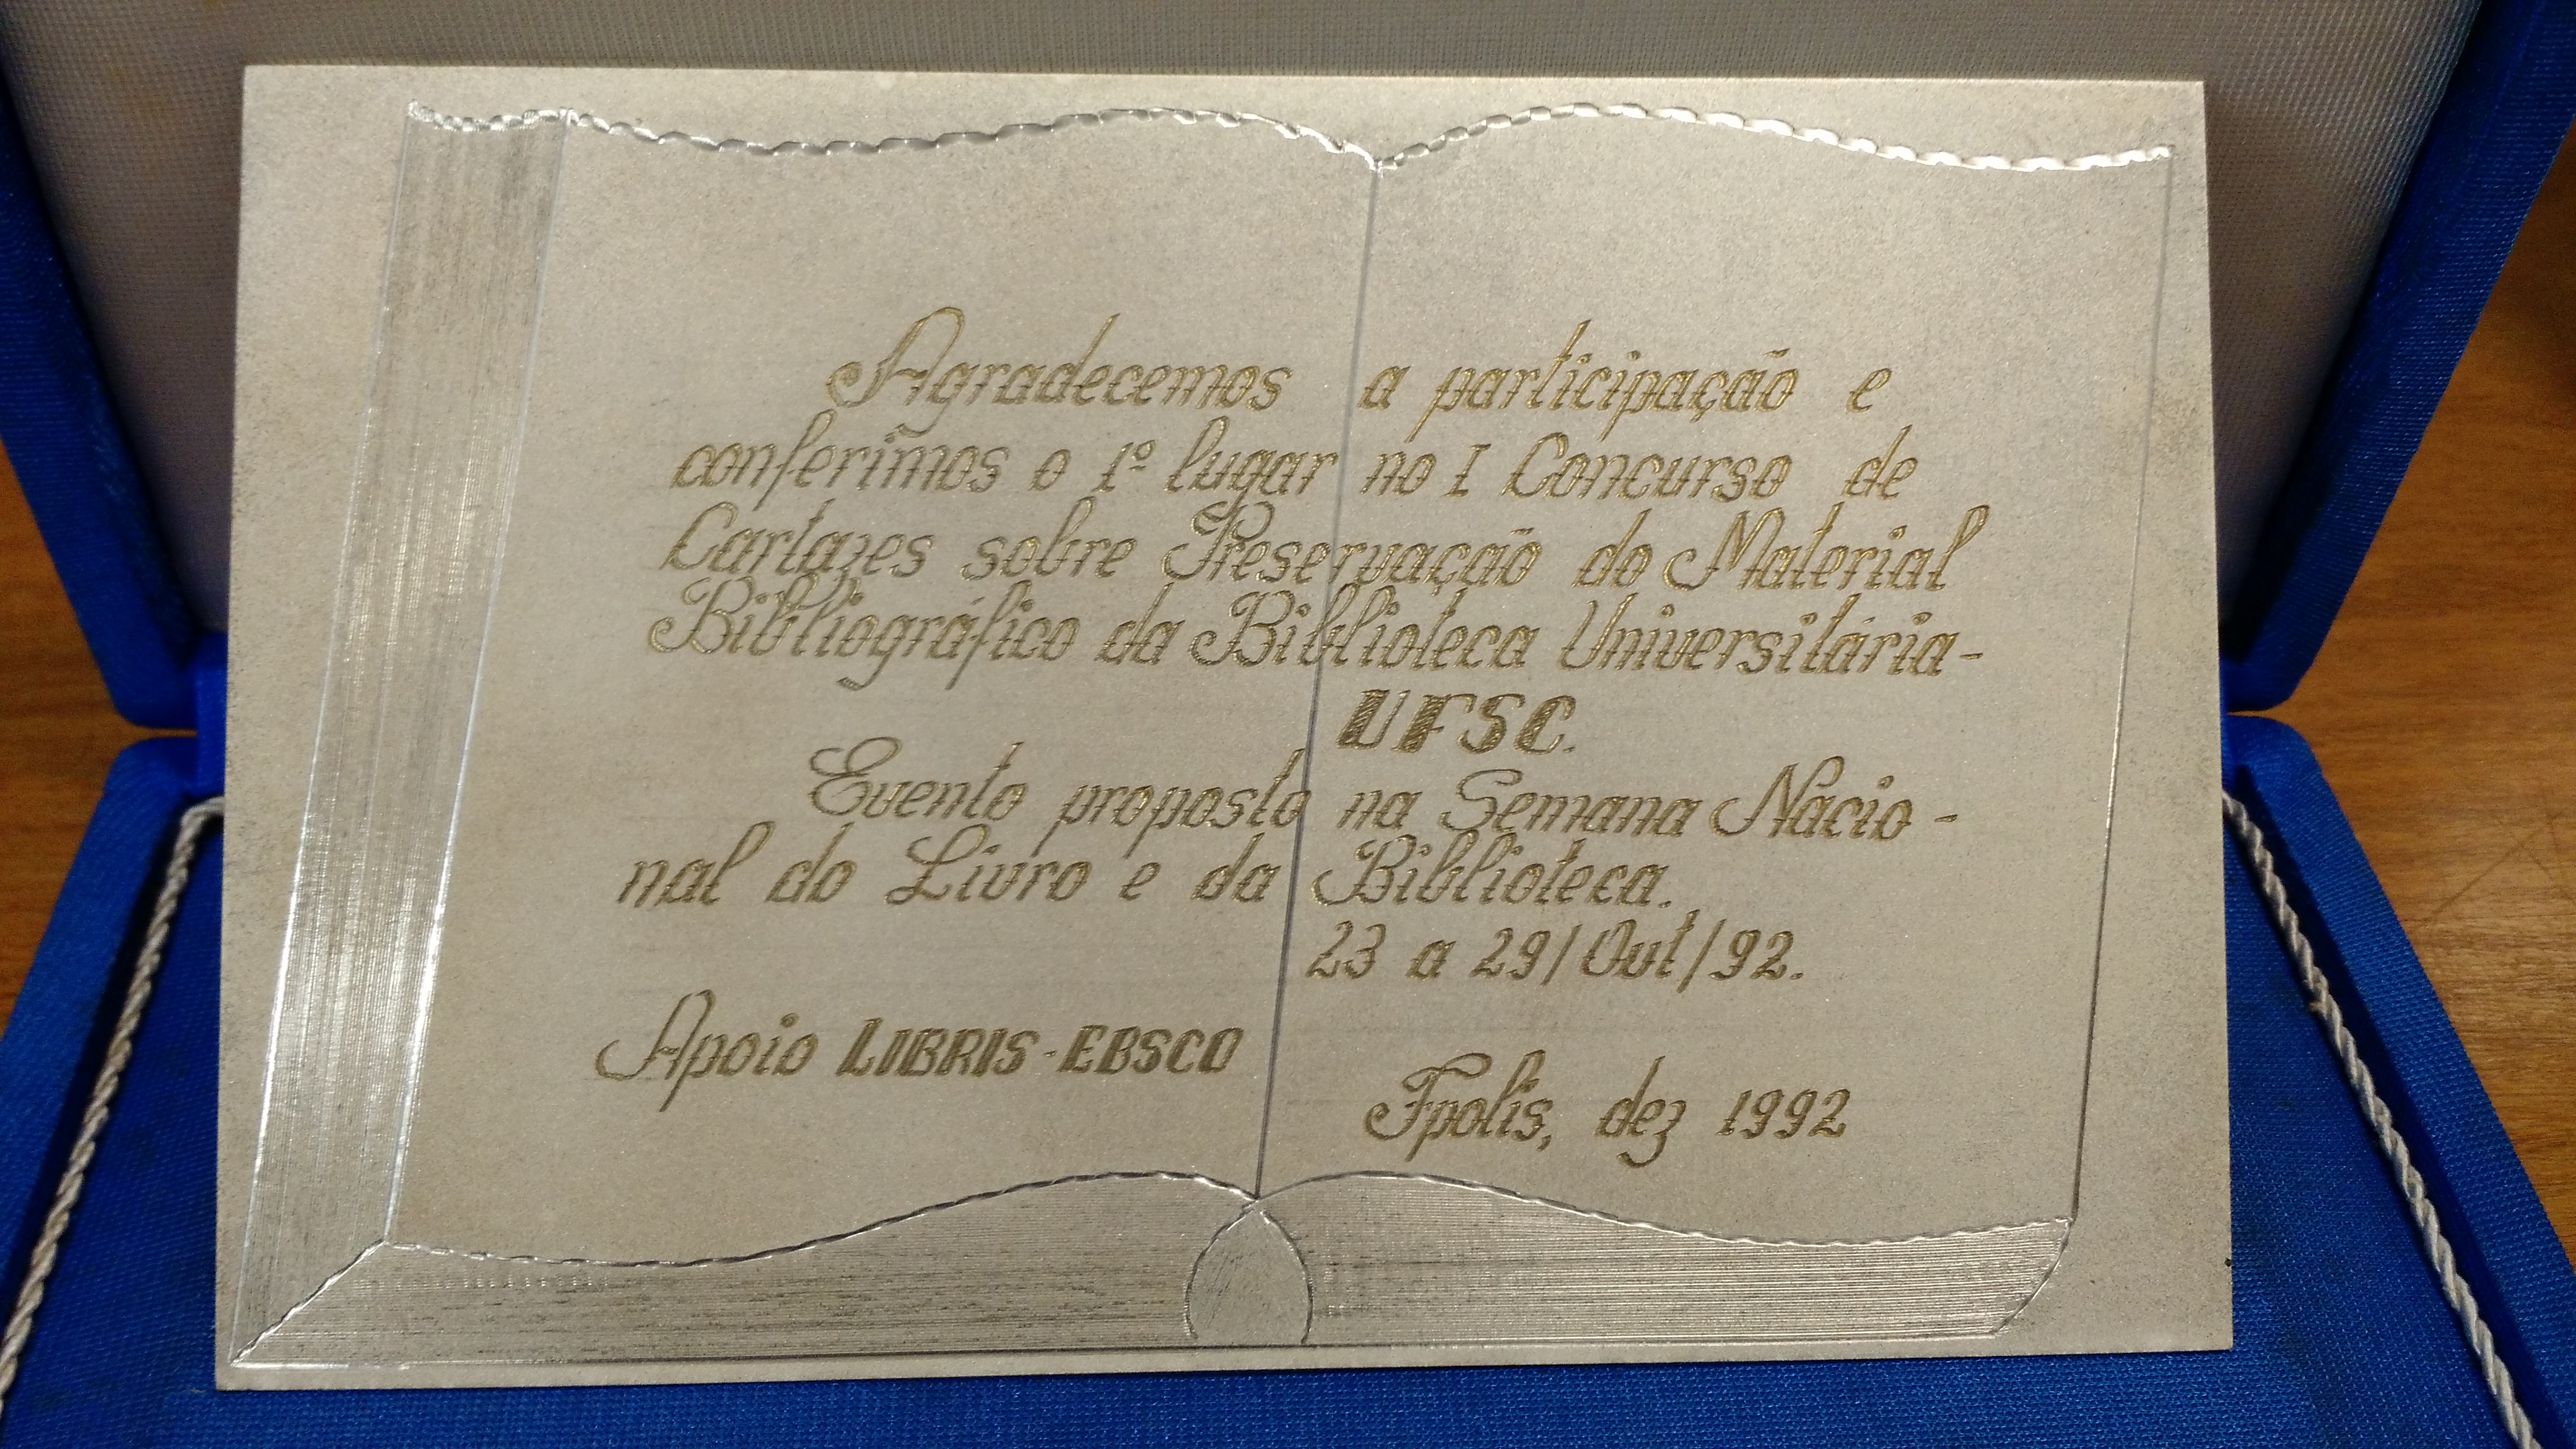 Agradecemos a participação e
conferimos o 1º lugar no I Concurso de
Cartazes sobre Preservação do Material
Bibliográfico da Biblioteca Universitária-
UFSC.
Evento proposto na Semana Nacio-
nal do Livro e da Biblioteca.
23 a 29/Out/92.
Apoio LIBRIS-EBSCO
Fpolis, dez 1992